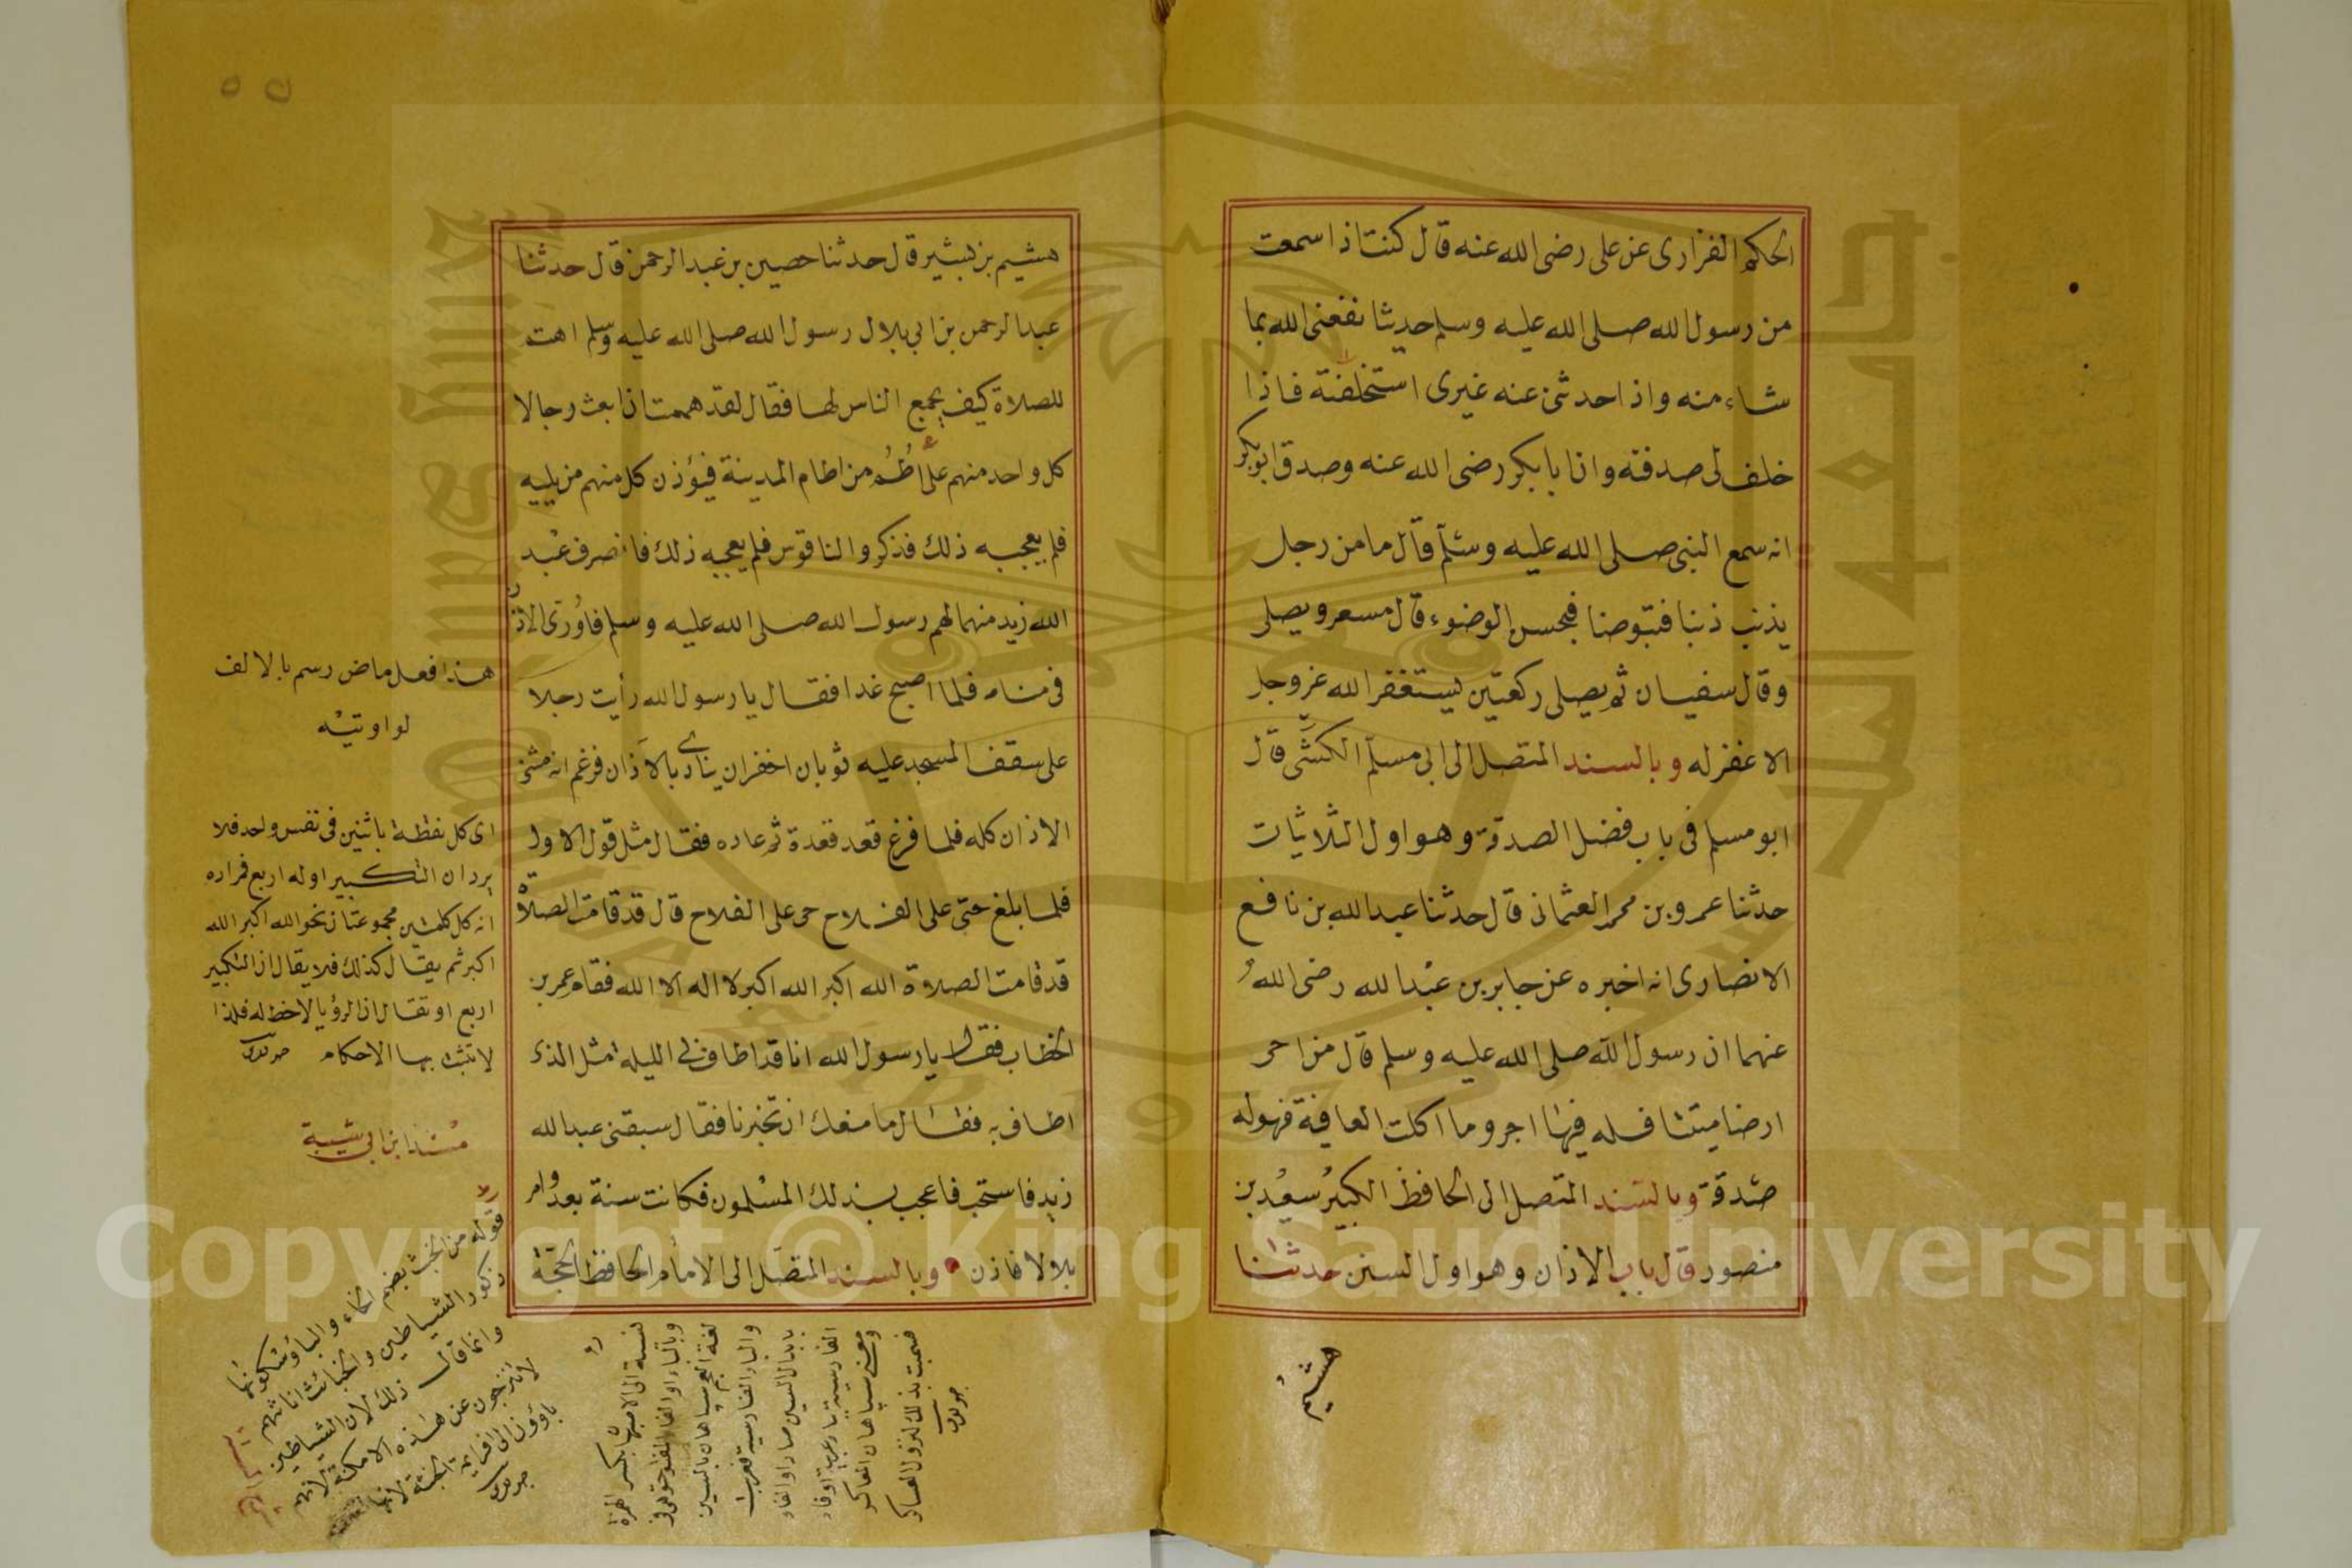 الحكم الفزارى عن على رضى الله عنه قال كنت اذا سمعت
من رسول الله صلى الله عليه وسلم حديثا نفعنى الله بما
شاء منه واذا حدثنى عنه غيرى استخلفته فاذا
خلف لى صدقته وان ابا بكر رضى الله عنه وصدق ابو بكر
انه سمع النبى صلى الله عليه وسلم قال ما من رجل
يذنب ذنبا فيتوضا فيحسن الوضوء قال مسعر ويصلى
وقال سفيان ثم يصلى ركعتين يستغفر الله عز وجل
الا غفر له وبالسند المتصل الى ابى مسلم الكشى قال
ابو مسلم فى باب فضل الصدقة وهو اول الثلاثيات
حدثنا عمرو بن محمد العثمانى قال حدثنا عبد الله بن نافع
الانصارى انه اخبره عن جابر بن عبد الله رضى الله
عنهما ان رسول الله صلى الله عليه وسلم قال من احى
ارضا ميتتا فله فيها اجر وما اكلت العافية فهو له
صدقة وبالسند المتصل الى الحافظ الكبير سعيد بن
منصور قال باب الاذان وهو اول السنن حدثنا
هشيم
هشيم بن بشير قال حدثنا حصين بن عبد الرحمن قال حدثنا
عبد الرحمن بن ابى بلال رسول الله صلى الله عليه وسلم اهت
للصلاة كيف يجمع الناس لها فقال لقد هممت ان ابعث رجالا
كل واحد منهم على أطُم من اطام المدينة فيؤذن كل منهم من يليه
فلم يعجبه ذلك فذكروا الناقوس فلم يعجبه ذلك فانصرف عبد
الله زيد منهما لهم رسول الله صلى الله عليه وسلم فاورى الاذان
فى منامه فلما اصبح غدا فقال يا رسول الله رأيت رجلا
على سقف المسجد عليه ثوبان اخضران ينادى بالاذان فزعم انه مثنى
الاذان كله فلما فرغ قعد قعدة ثم عاده فقال مثل قول الاول
فلما بلغ حتى على الفلاح حى على الفلاح قال قد قامت الصلاة
قد قامت الصلاة الله اكبر الله اكبر لا اله الا الله فقام عمر بن
الخطاب فقال يا رسول الله انا قد اطاف لى الليلة مثل الذى
اطاف به فقال ما منعك ان تخبرنا فقال سبقنى عبد الله
زيد فاستحب فاعجب بذلك المسلمون فكانت سنة بعد وامر
بلالا فاذن وبالسند المتصل الى الامام الحافظ الحجة
هذا فعل ماض رسم بالالف
لو اوتيه
اى كل نقطة باثنين فى نفس واحد فلا
يرد ان التكبير اوله اربع فمراده
انه كل كلمتين مجموعتان نحو الله اكبر الله
اكبر ثم يقال كذلك فلا يقال ان التكبير
اربع او تقال ان الرؤيا لا حظ له فلذا
لا تثبت بها الاحكام
مسند ابن ابى شيبة
قوله من الخبث بضم الخاء والباء وسكونها
ذكور الشياطين والخبائث اناثهم
وانما قال ذلك لان الشياطين
نسبة الى الاصبهان بكسر الهمزة
لغة العجم سپاهان بالسين
Copyright © King Saud University